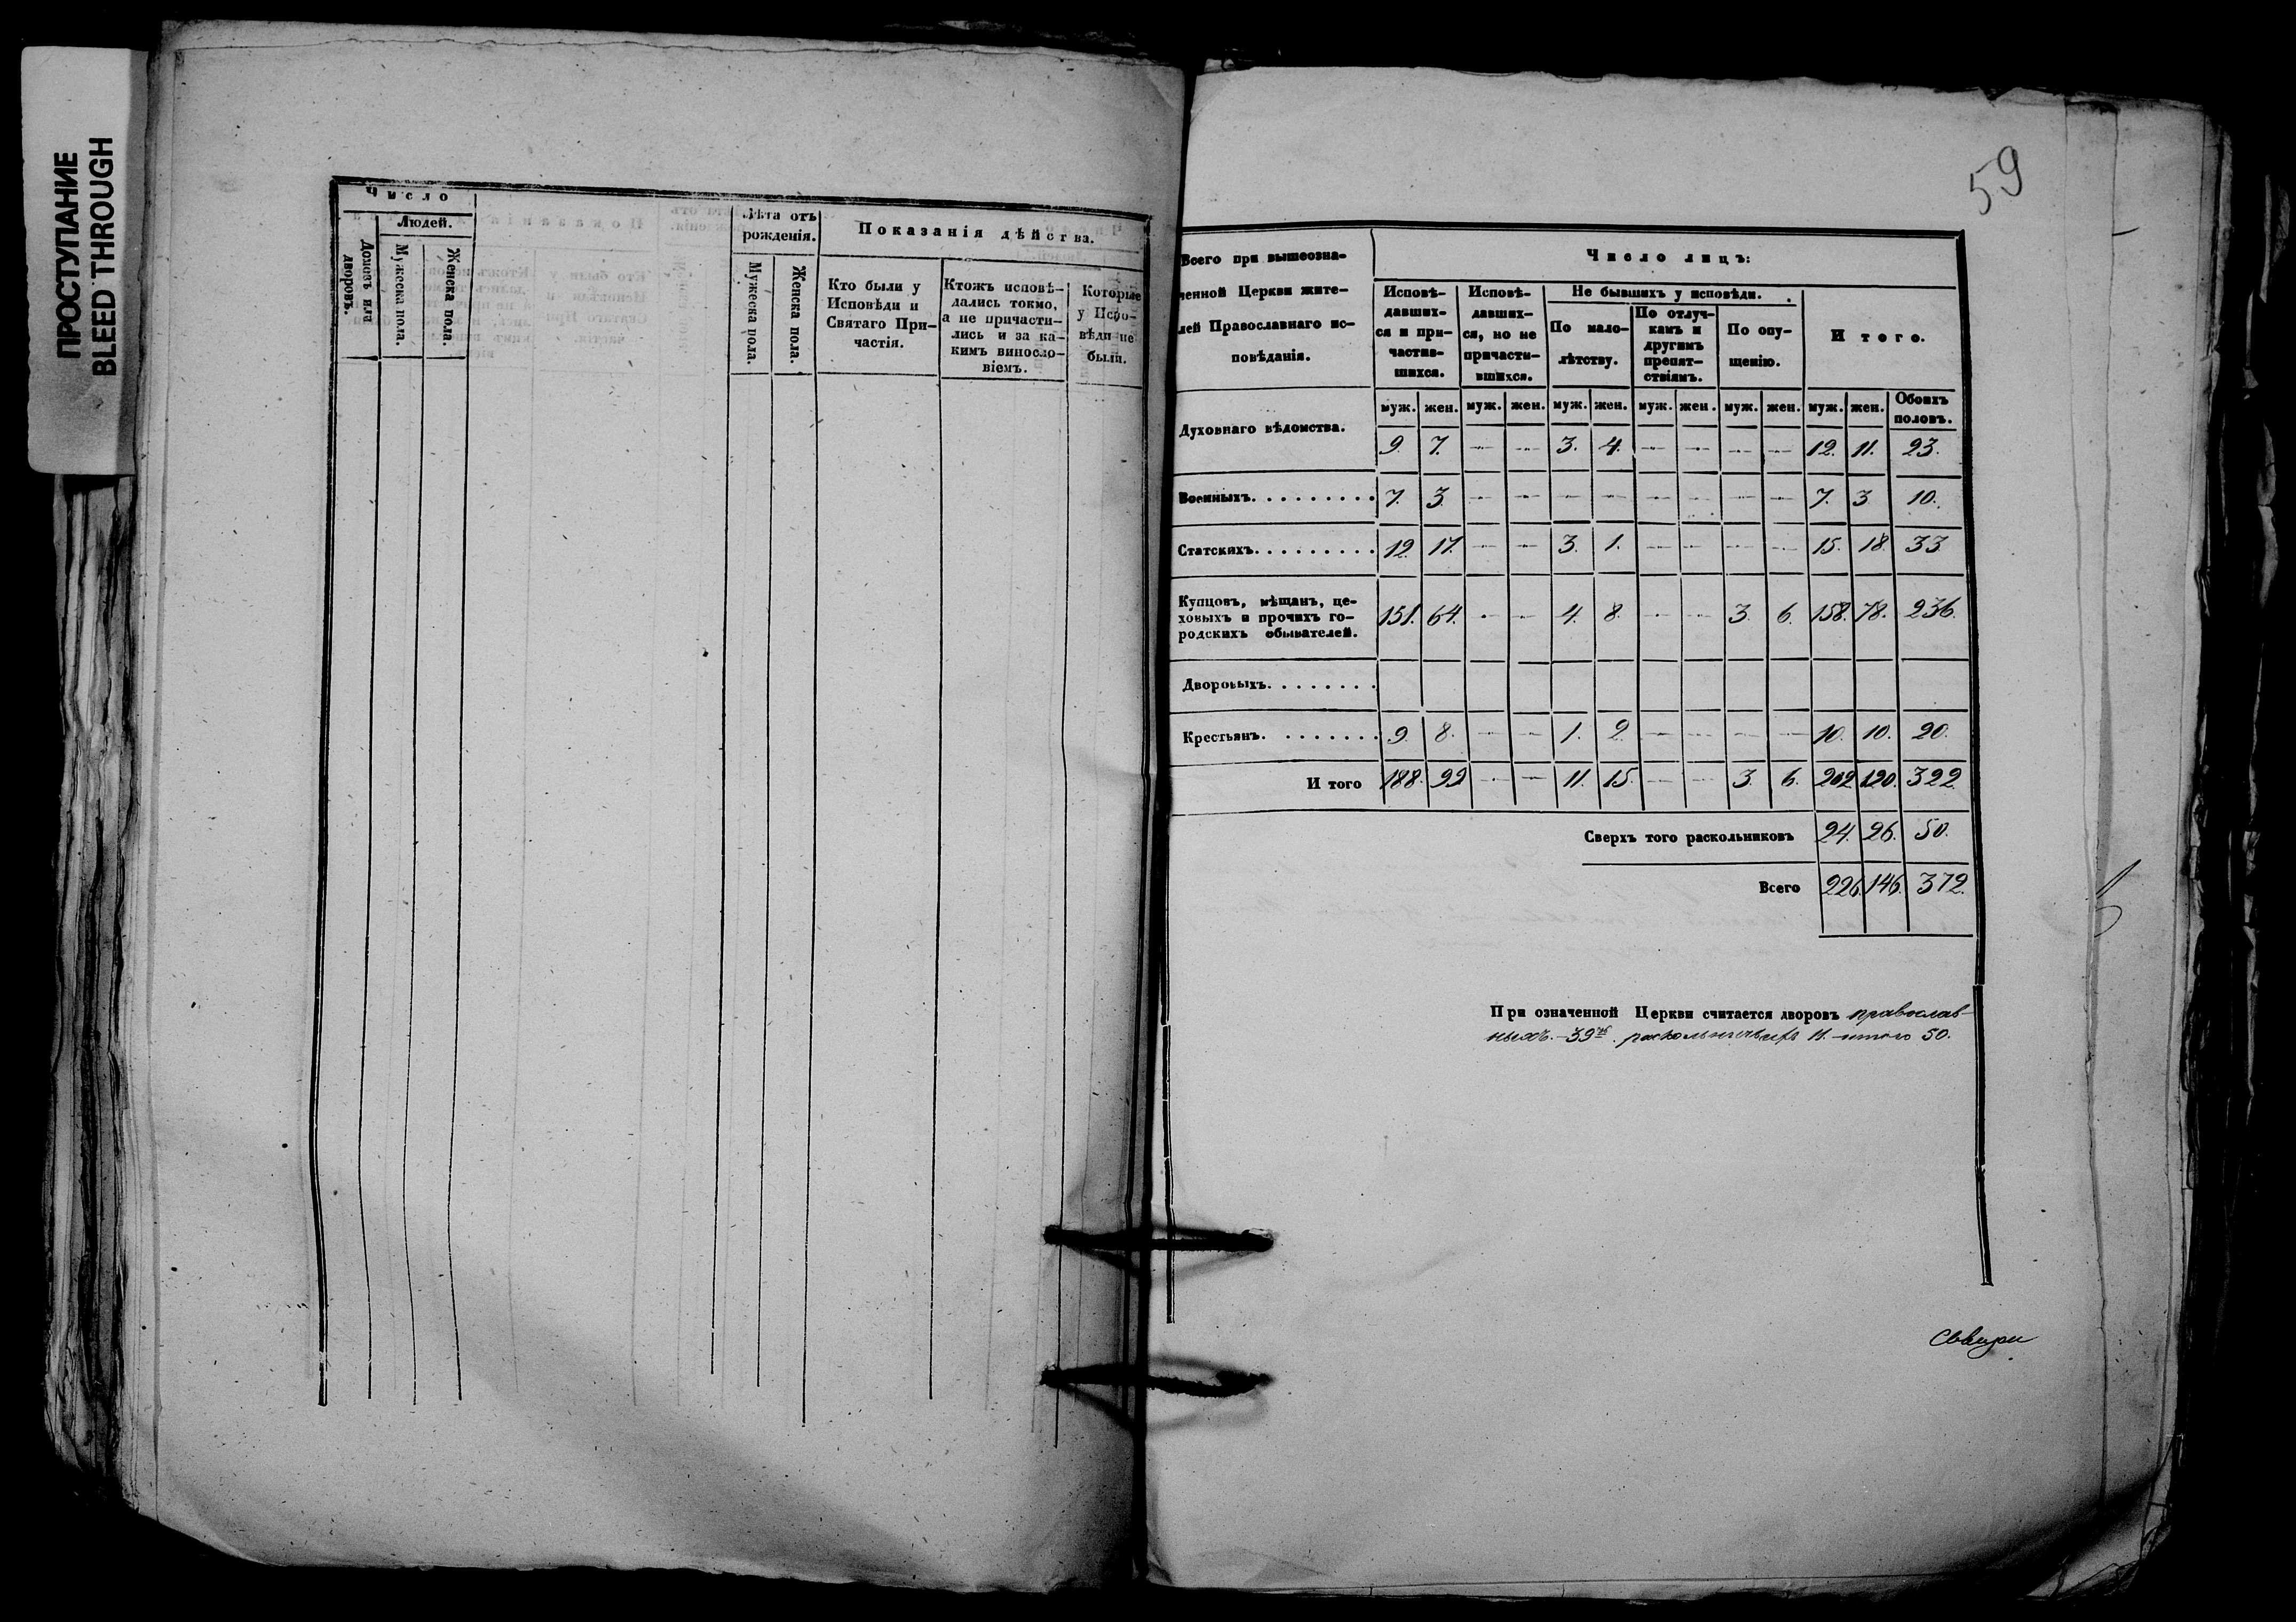 ПРОСТУПАНИЕ
BLEED THROUGH
Число
Людей.
Домовъ или дворовъ.
Мужеска пола.
Женска пола.
Лѣта отъ рожденія.
Мужеска пола.
Женска пола.
Показанія дѣйства.
Кто были у
Исповѣди и
Святаго При-
частія.
Ктожъ исповѣ-
дались токмо,
а не причасти-
лись и за ка-
кимъ винословіемъ.
Которые
у Испо-
вѣди не
были.
59
Всего при вышеозна-
ченной Церкви жите-
лей Православнаго ис-
повѣданія.
Число лицъ:
Исповѣ-
давших-
ся и при-
частив-
шихся.
Исповѣ-
давших-
ся, но не
причасти-
вшихся.
Не бывшихъ у исповѣди.
По мало-
лѣтству.
По отлуч-
камъ и
другимъ
препят-
ствіямъ.
По опу-
щенію.
Итого.
муж. жен. муж. жен. муж. жен. муж. жен. муж. жен. муж. жен. Обоихъ половъ.
Духовнаго вѣдомства. 9. 7. — — 3. 4. — — — — 12. 11. 23.
Военныхъ. 7. 3. — — — — — — — — 7. 3 10.
Статскихъ. 12. 17. — — 3. 1. — — — — 15. 18. 33
Купцовъ, мѣщанъ, це-
ховыхъ и прочихъ го-
родскихъ обывателей. 151. 64. — — 4. 8. — — 3. 6. 158. 78. 236.
Дворовыхъ.
Крестьянъ. 9. 8. — — 1. 2. — — — — 10. 10. 20.
И того 188. 99 — — 11. 15. — — 3. 6. 202. 120. 322.
Сверхъ того раскольниковъ 24. 26. 50.
Всего 226. 146. 372.
При означенной Церкви считается дворовъ православ-
ныхъ. 39 раскольничьихъ 11. итого 50.